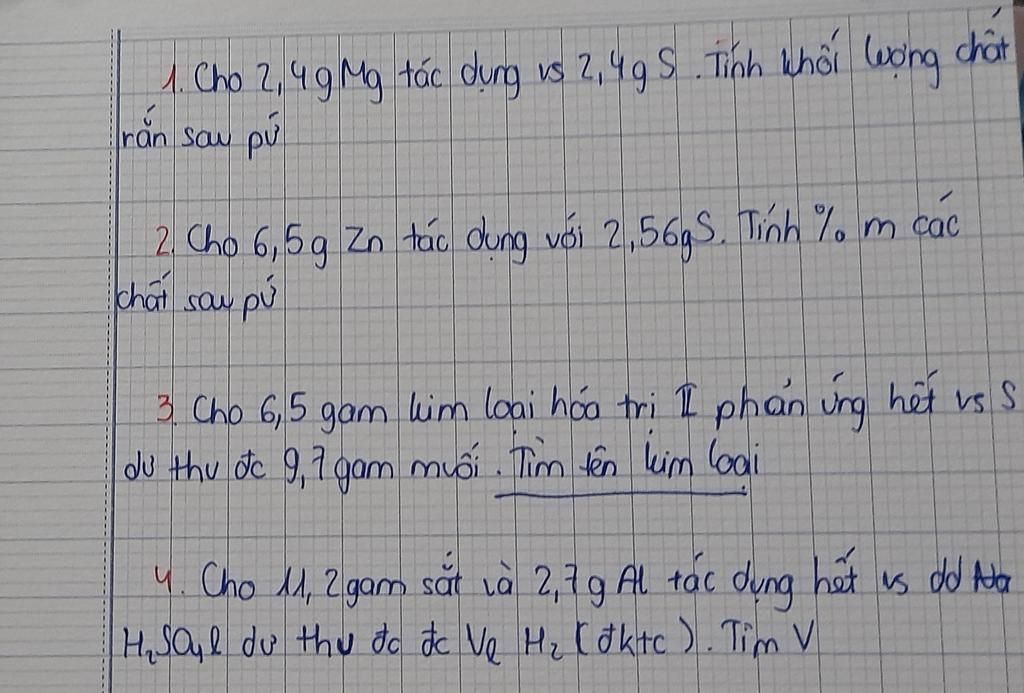 1. Cho 2,4g Mg tác dụng vs 2,4g S. Tính khối lượng chất
rắn sau pứ
2. Cho 6,5g Zn tác dụng với 2,56g S. Tính % m các
chất sau pứ
3. Cho 6,5 gam kim loại hóa trị II phản ứng hết vs S
dư thu đc 9,7 gam muối. Tìm tên kim loại
4. Cho 11,2 gam sắt và 2,7g Al tác dụng hết vs dd
H₂SO₄l dư thu đc đc Vl H₂ (đktc). Tìm V